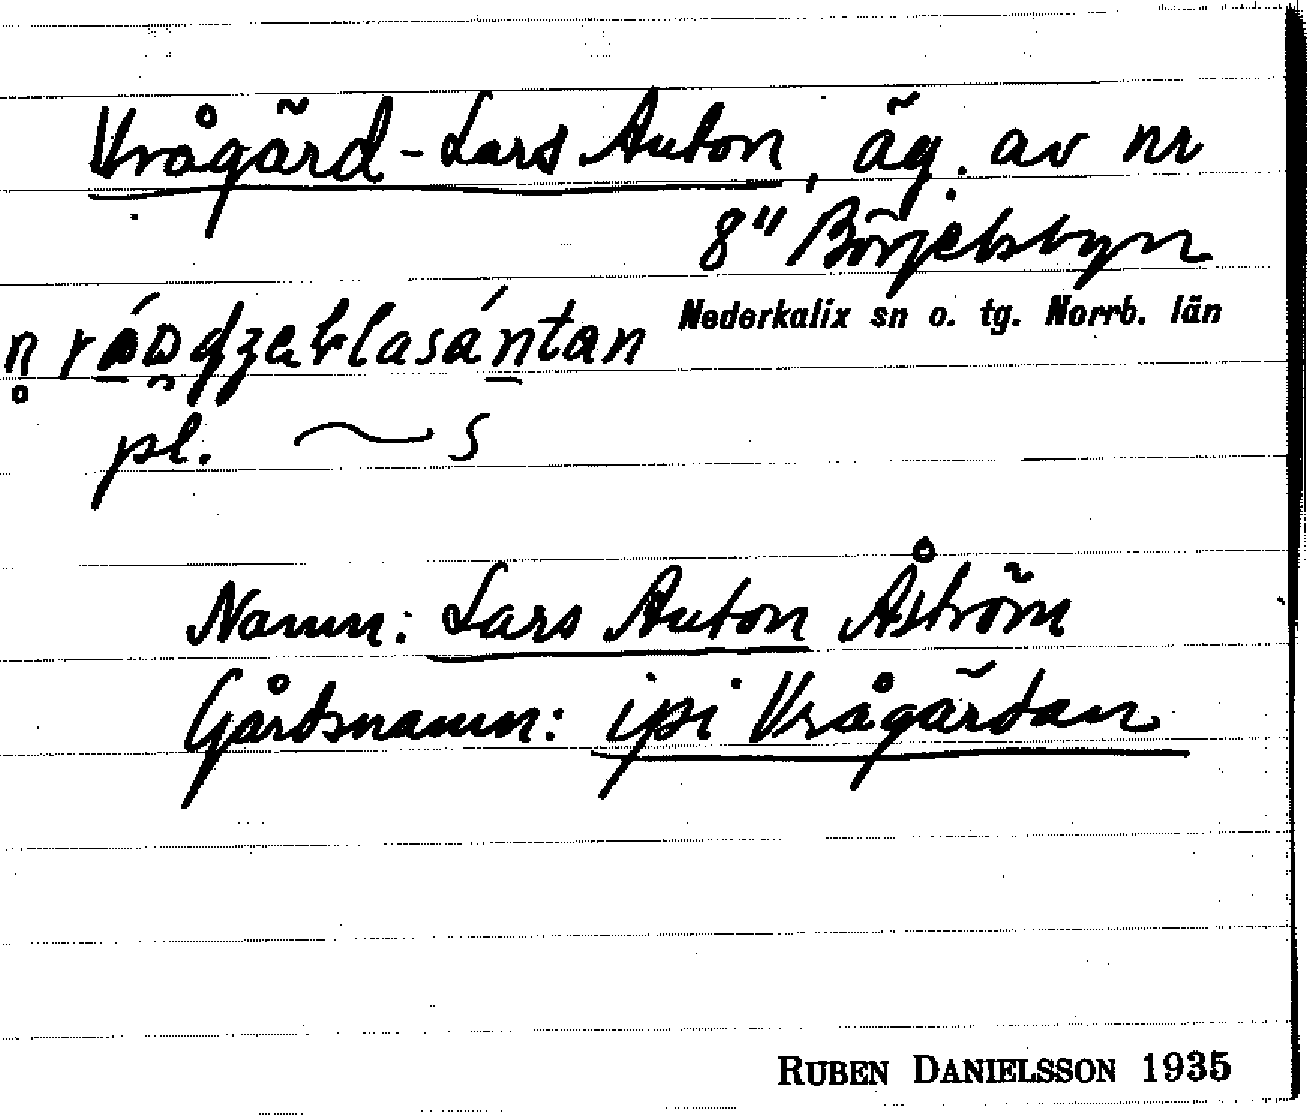 Vrågård-Lars Anton, äg. av nr
8" Börjelsbyn
Nederkalix sn o. tg. Norrb. län
pl. ~ s
Namn: Lars Anton Åström
Gårdsnamn: ipi Vrågårdan
RUBEN DANIELSSON 1935